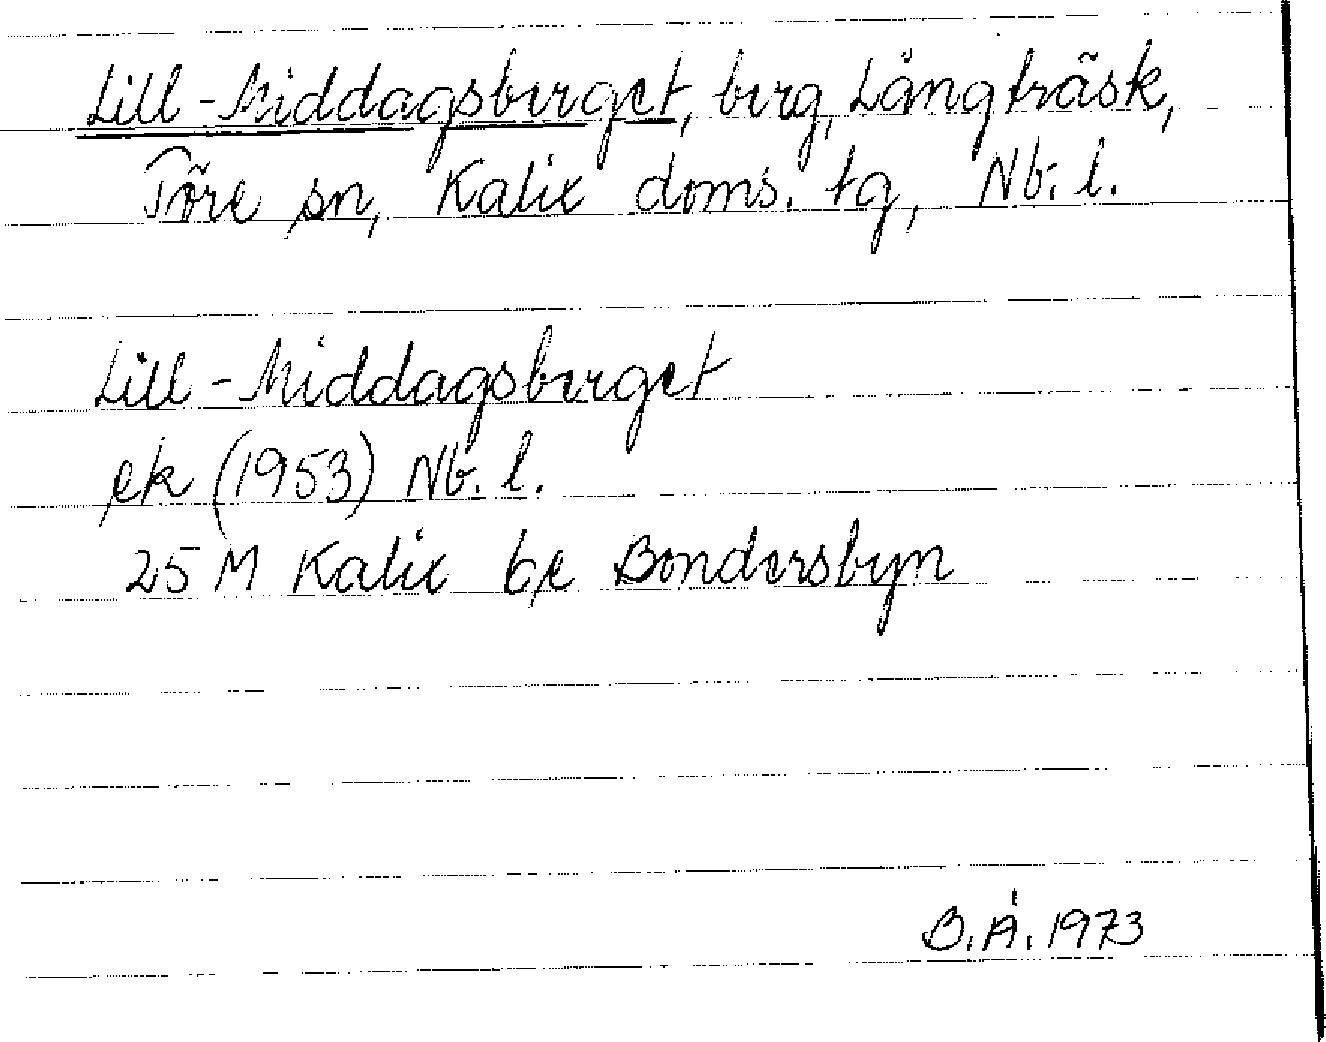 Lill-Middagsberget, berg, Långträsk,
Töre sn, Kalix doms. tg, Nb. l.
Lill-Middagsberget
ek (1953) Nb. l.
25 M Kalix 6e Bondersbyn
B.Å. 1973